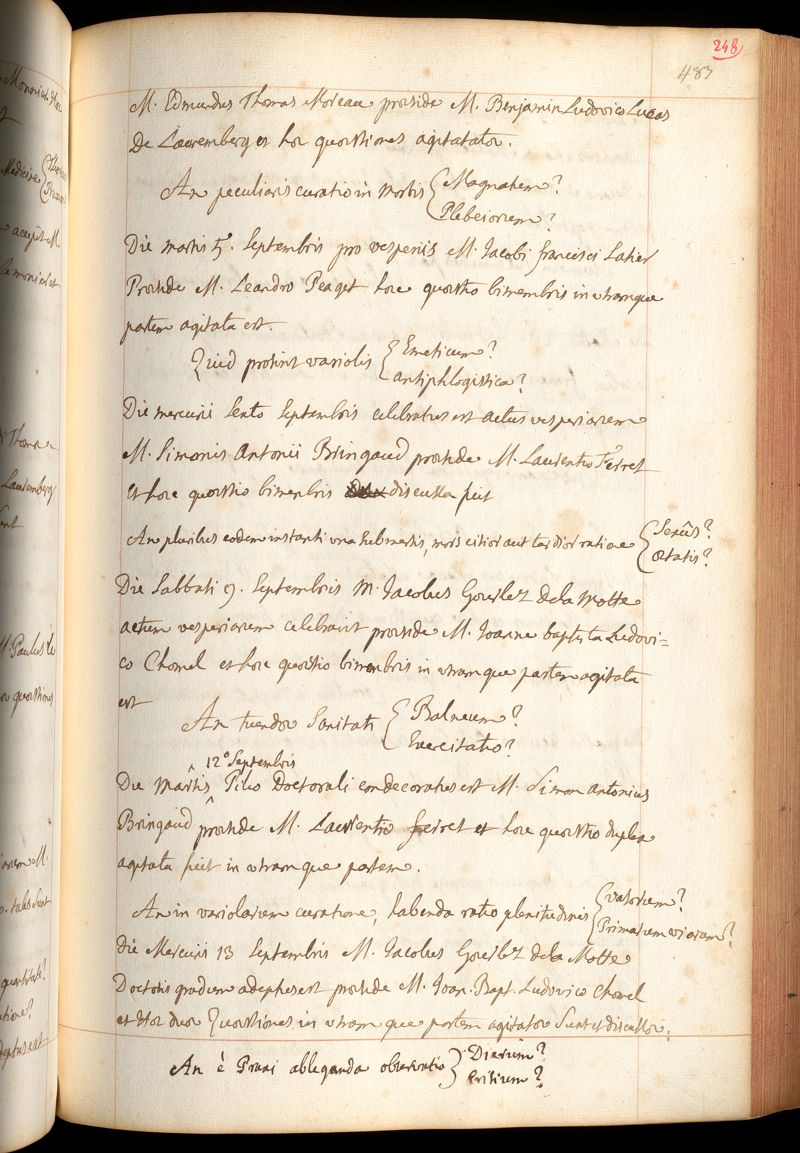 248
487
M. Edmundus Thomas Moreau præside M. Benjamin Ludovico Lucas
De Lauremberg et hæ quæstiones agitatæ.
An peculiaris curatio in morbis { Magnatum?
Plebeiorum?
Die martis 5. Septembris pro vesperiis M. Jacobi francisci Latier
Præside M. Leandro Peaget hæc quæstio bimembris in utramque
partem agitata est.
Quid prosint variolis { Emeticum?
antiphlogistica?
Die mercurii sexto Septembris celebratus est actus vesperiarum
M. Simonis Antonii Bringaud præside M. Laurentio Ferret
Et hæc quæstio bimembris discussa fuit
An pluribus eodem instanti una submersis, mors citior aut tardior ratione { Sexûs?
ætatis?
Die Sabbati 9. Septembris M. Jacobus Gourlez de la Motte
actum vesperiarum celebravit præside M. Joanne baptista Ludovi=
co Chomel et hæc quæstio bimembris in utramque partem agitata
est
An tuendæ Sanitati { Balneum?
Exercitatio?
12° Septembris
Die Martis Pileo Doctorali condecoratus est M. Simon Antonius
Bringaud præside M. Laurentio ferret et hæc quæstio duplex
agitata fuit in utramque partem.
An in variolarum curatione, habenda ratio plenitudinis { vasorum?
Primarum viarum?
Die Mercurii 13 Septembris M. Jacobus Gourlez de la Motte
Doctoris gradum adeptus est præside M. Joan. Bapt. Ludovico Chomel
et Hæ duæ Quæstiones in utramque partem agitatæ Sunt et discussæ;
An è Praxi ableganda observatio } Dierum?
Crisium?